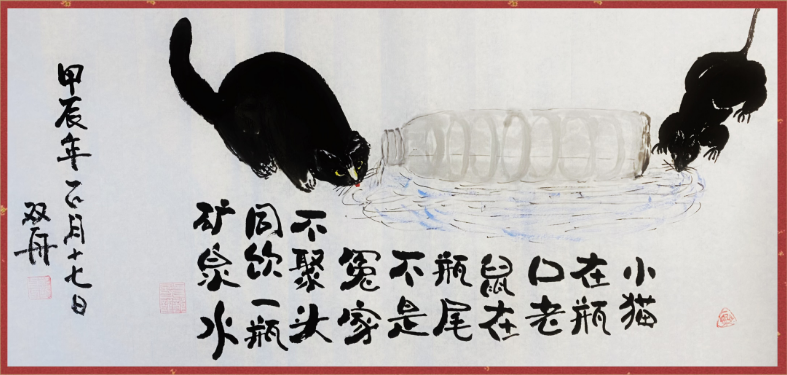 小猫
在瓶
口老
鼠在
瓶尾
不是
冤家
不聚头
同饮一瓶
矿泉水
甲辰年月十七日
双舟